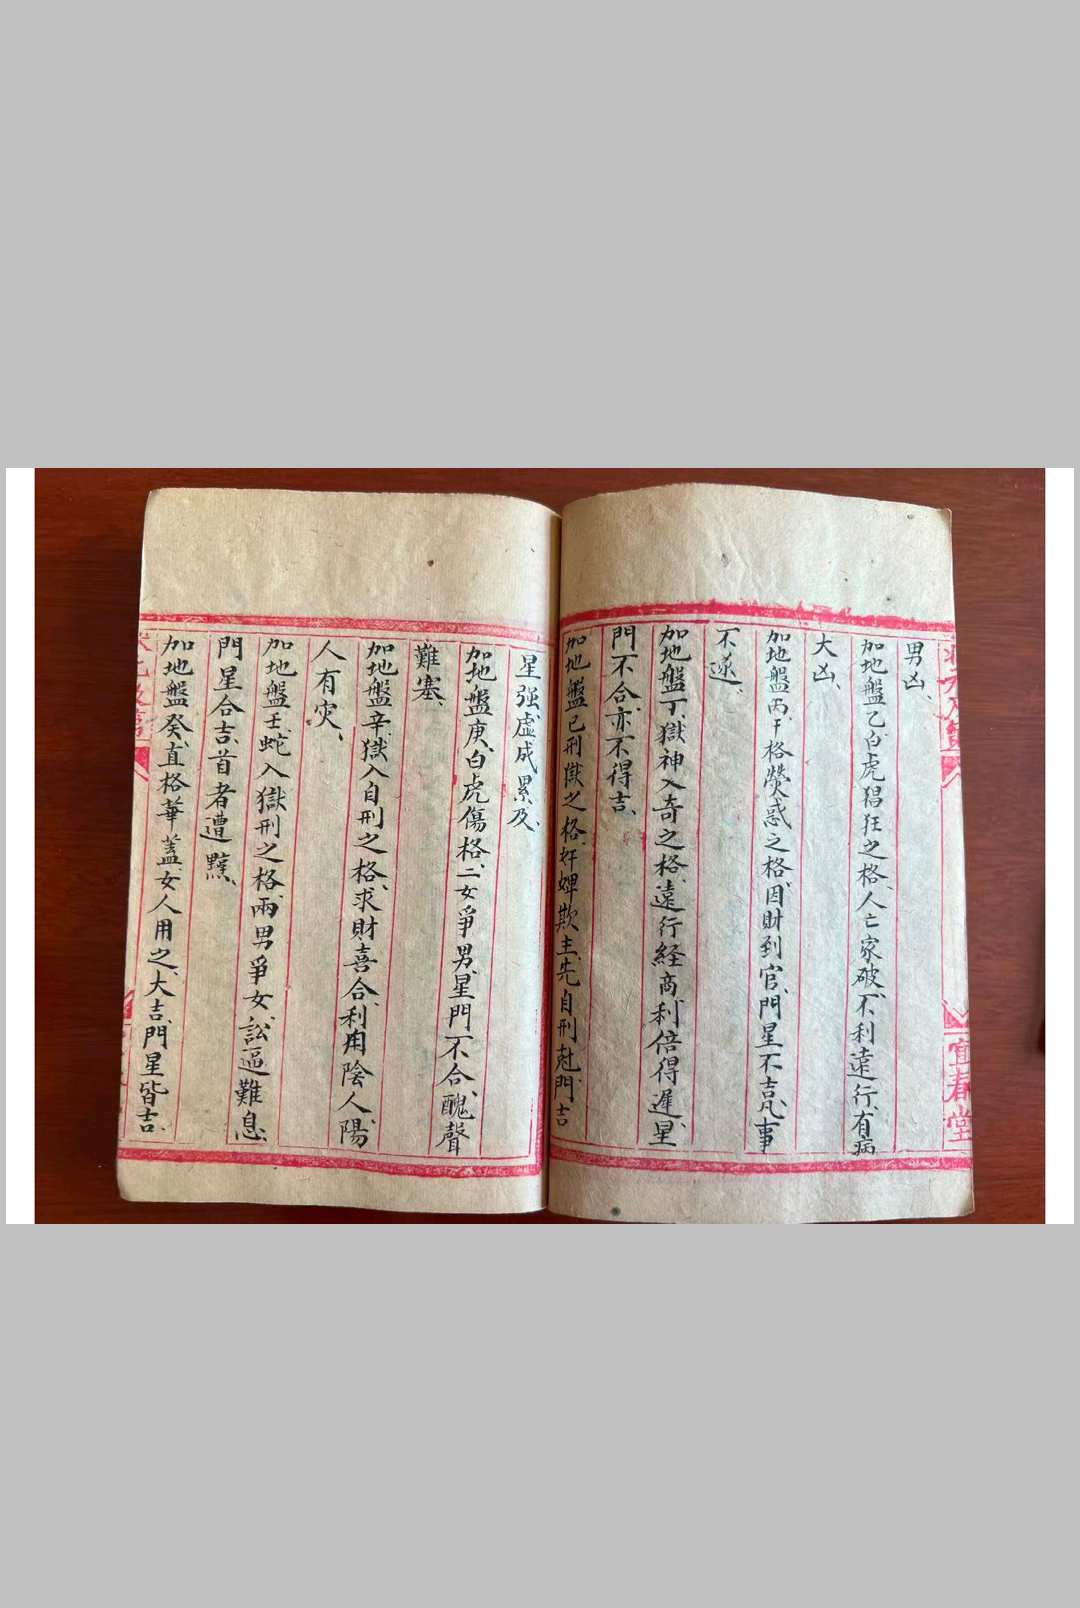 男凶、
加地盤乙、白虎猖狂之格、人亡家破、不利遠行、有病
大凶、
加地盤丙、干格熒惑之格、因財到官、門星不吉、凡事
不遂、
加地盤丁、獄神入奇之格、遠行經商、利倍得遲、星
門不合、亦不得吉、
加地盤己、刑獄之格、奸婢欺主、先自刑尅、門吉
星强、虛成累及、
加地盤庚、白虎傷格、二女爭男、星門不合、醜聲
難塞、
加地盤辛、獄入自刑之格、求財喜合、利用陰人、陽
人有灾、
加地盤壬、蛇入獄刑之格、兩男爭女、訟逼難息、
門星合吉、首者遭
加地盤癸、直格華盖、女人用之、大吉、門星皆吉、
宜春堂